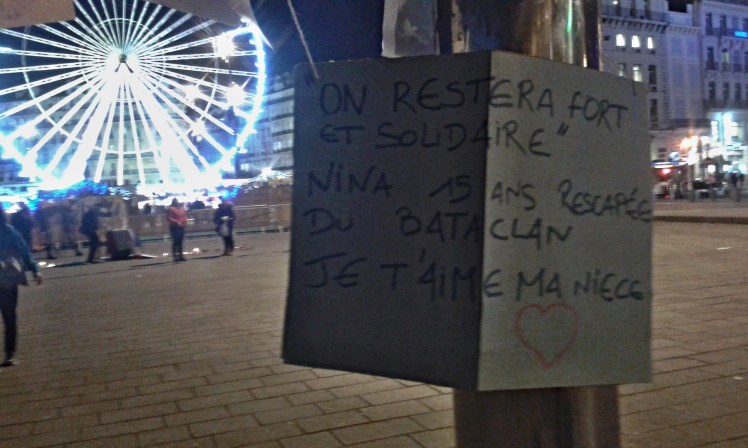 "ON RESTERA FORT
ET SOLIDAIRE"
NINA 15 ANS RESCAPÉE
DU BATACLAN
JE T'AIME MA NIECE